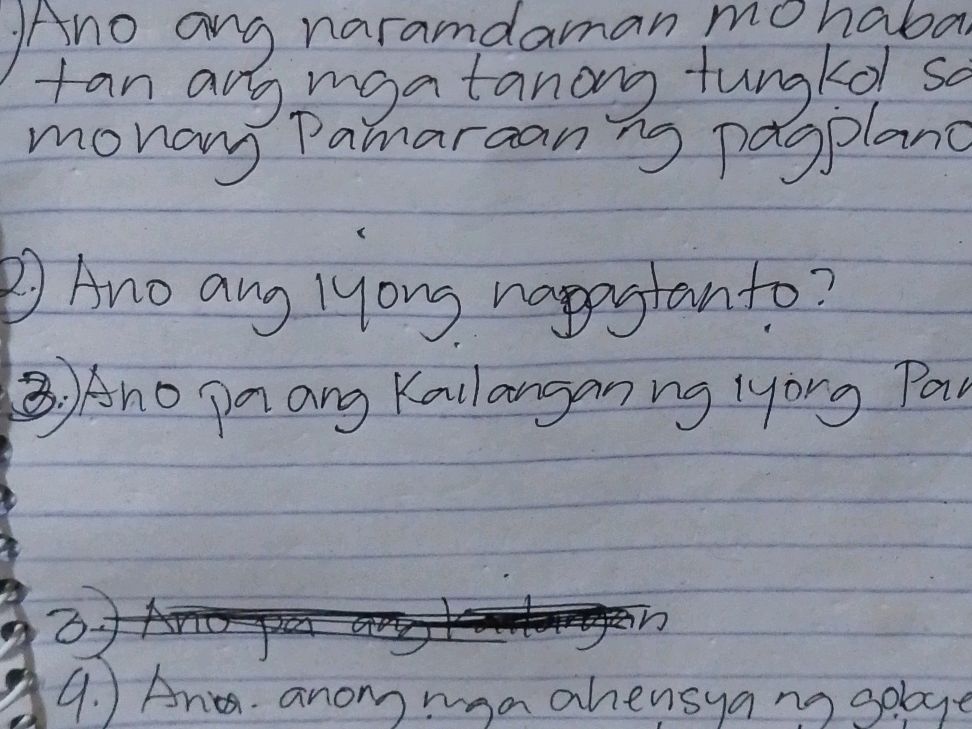 ) Ano ang naramdaman mo haba
tan ang mga tanong tungkol sa
monang Pamaraan ng pagplano
2.) Ano ang iyong napagtanto?
3.) Ano pa ang Kailangan ng iyong Pa
3.) Ano pa ang kailangan
4.) anong mga ahensya ng gobye